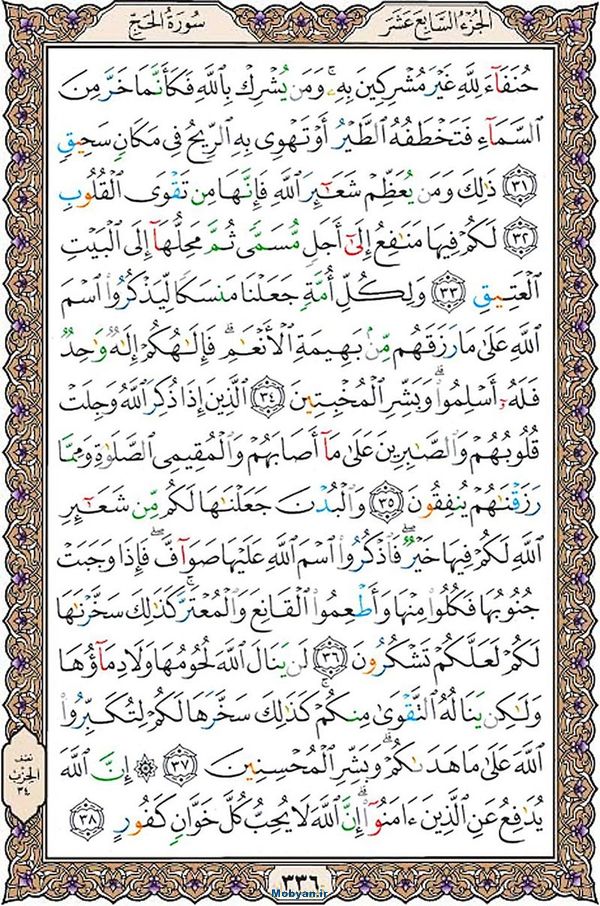 الجُزْءُ السَّابِعُ عَشَرَ
سُورَةُ الحَجّ
حُنَفَآءَ لِلَّهِ غَيْرَ مُشْرِكِينَ بِهِۦۚ وَمَن يُشْرِكْ بِٱللَّهِ فَكَأَنَّمَا خَرَّ مِنَ
ٱلسَّمَآءِ فَتَخْطَفُهُ ٱلطَّيْرُ أَوْ تَهْوِى بِهِ ٱلرِّيحُ فِى مَكَانٍ سَحِيقٍ
٣١ ذَٰلِكَ وَمَن يُعَظِّمْ شَعَـٰٓئِرَ ٱللَّهِ فَإِنَّهَا مِن تَقْوَى ٱلْقُلُوبِ
٣٢ لَكُمْ فِيهَا مَنَـٰفِعُ إِلَىٰٓ أَجَلٍ مُّسَمًّى ثُمَّ مَحِلُّهَآ إِلَى ٱلْبَيْتِ
ٱلْعَتِيقِ ٣٣ وَلِكُلِّ أُمَّةٍ جَعَلْنَا مَنسَكًا لِّيَذْكُرُوا۟ ٱسْمَ
ٱللَّهِ عَلَىٰ مَا رَزَقَهُم مِّنۢ بَهِيمَةِ ٱلْأَنْعَـٰمِۗ فَإِلَـٰهُكُمْ إِلَـٰهٌ وَٰحِدٌ
فَلَهُۥٓ أَسْلِمُوا۟ۗ وَبَشِّرِ ٱلْمُخْبِتِينَ ٣٤ ٱلَّذِينَ إِذَا ذُكِرَ ٱللَّهُ وَجِلَتْ
قُلُوبُهُمْ وَٱلصَّـٰبِرِينَ عَلَىٰ مَآ أَصَابَهُمْ وَٱلْمُقِيمِى ٱلصَّلَوٰةِ وَمِمَّا
رَزَقْنَـٰهُمْ يُنفِقُونَ ٣٥ وَٱلْبُدْنَ جَعَلْنَـٰهَا لَكُم مِّن شَعَـٰٓئِرِ
ٱللَّهِ لَكُمْ فِيهَا خَيْرٌۖ فَٱذْكُرُوا۟ ٱسْمَ ٱللَّهِ عَلَيْهَا صَوَآفَّۖ فَإِذَا وَجَبَتْ
جُنُوبُهَا فَكُلُوا۟ مِنْهَا وَأَطْعِمُوا۟ ٱلْقَانِعَ وَٱلْمُعْتَرَّۚ كَذَٰلِكَ سَخَّرْنَـٰهَا
لَكُمْ لَعَلَّكُمْ تَشْكُرُونَ ٣٦ لَن يَنَالَ ٱللَّهَ لُحُومُهَا وَلَا دِمَآؤُهَا
وَلَـٰكِن يَنَالُهُ ٱلتَّقْوَىٰ مِنكُمْۚ كَذَٰلِكَ سَخَّرَهَا لَكُمْ لِتُكَبِّرُوا۟
ٱللَّهَ عَلَىٰ مَا هَدَىٰكُمْۗ وَبَشِّرِ ٱلْمُحْسِنِينَ ٣٧ ۞ إِنَّ ٱللَّهَ
يُدَٰفِعُ عَنِ ٱلَّذِينَ ءَامَنُوٓا۟ۗ إِنَّ ٱللَّهَ لَا يُحِبُّ كُلَّ خَوَّانٍ كَفُورٍ ٣٨
نصف
الحزب
٣٤
٣٣٦
Mobyan.ir